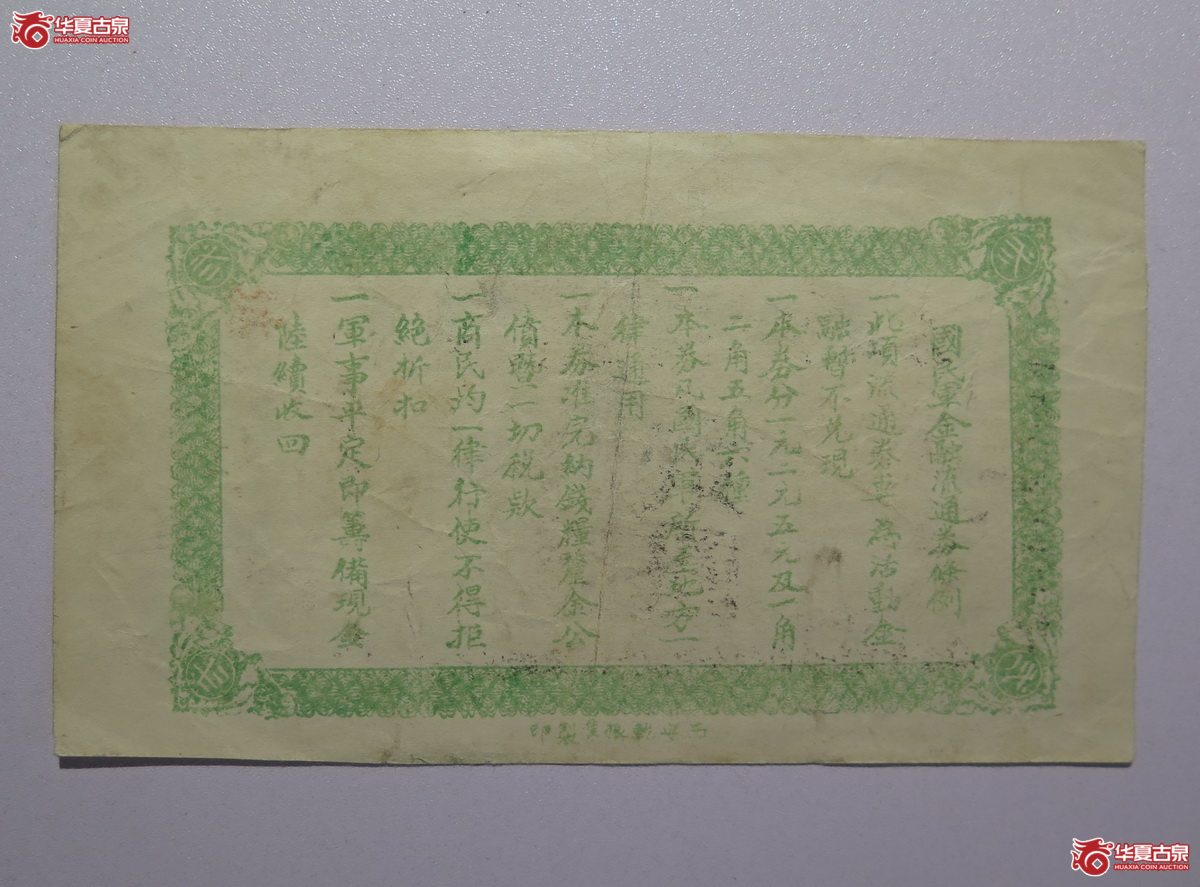 华夏古泉
HUAXIA COIN AUCTION
國民軍金融流通券條例
一此項流通券專為活動金
融暫不兌現
一本券分一元二元五元及一角
二角五角六種
一本券凡國民軍所至地方一
律通用
一本券准完納錢糧釐金公
債暨一切稅款
一商民均一律行使不得拒
絕折扣
一軍事平定即籌備現金
陸續收回
製印
华夏古泉
HUAXIA COIN AUCTION